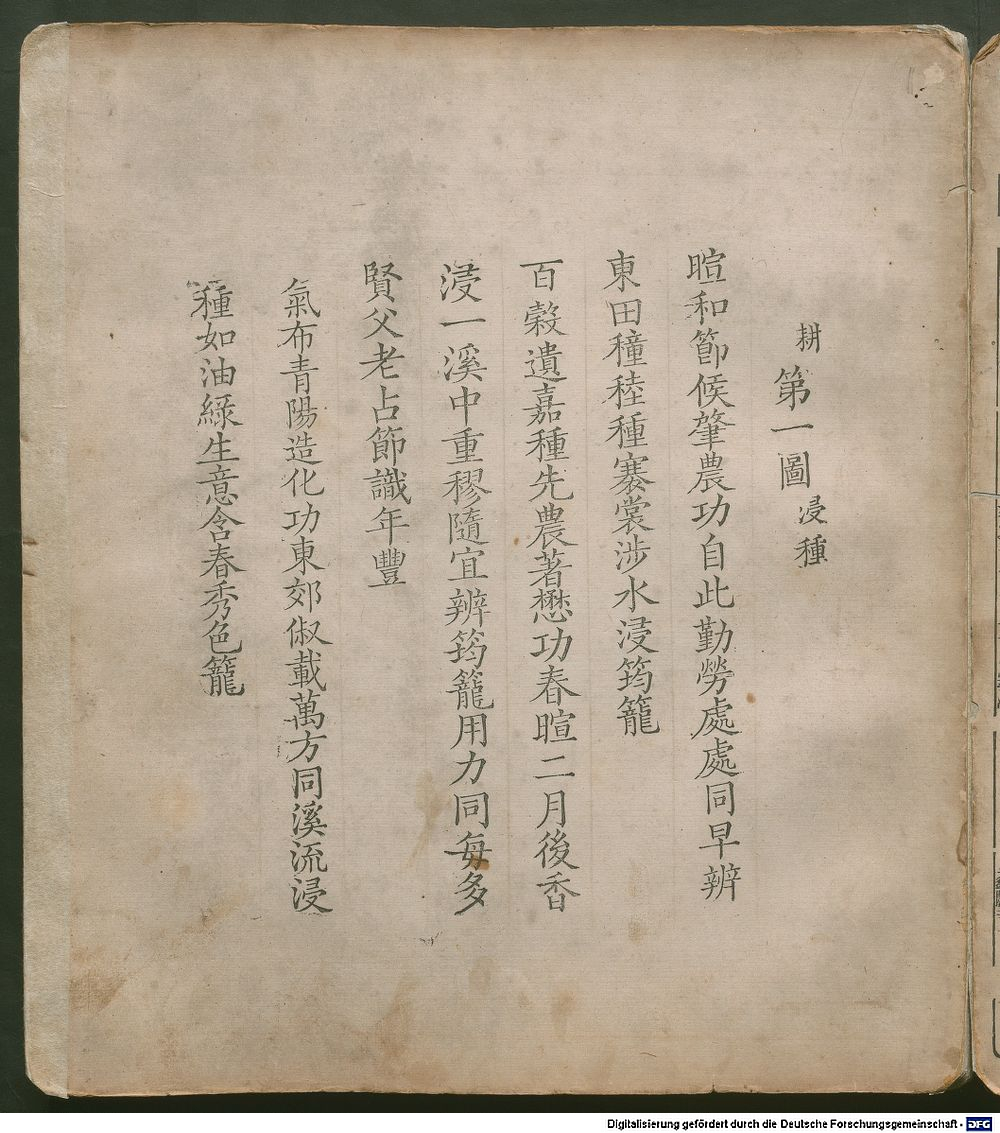 耕 第一圖 浸種
暄和節候肇農功自此勤勞處處同早辨
東田穜稑種褰裳涉水浸筠籠
百穀遺嘉種先農著懋功春暄二月後香
浸一溪中重穋隨宜辨筠籠用力同每多
賢父老占節識年豐
氣布青陽造化功東郊俶載萬方同溪流浸
種如油綠生意含春秀色籠
Digitalisierung gefördert durch die Deutsche Forschungsgemeinschaft - DFG